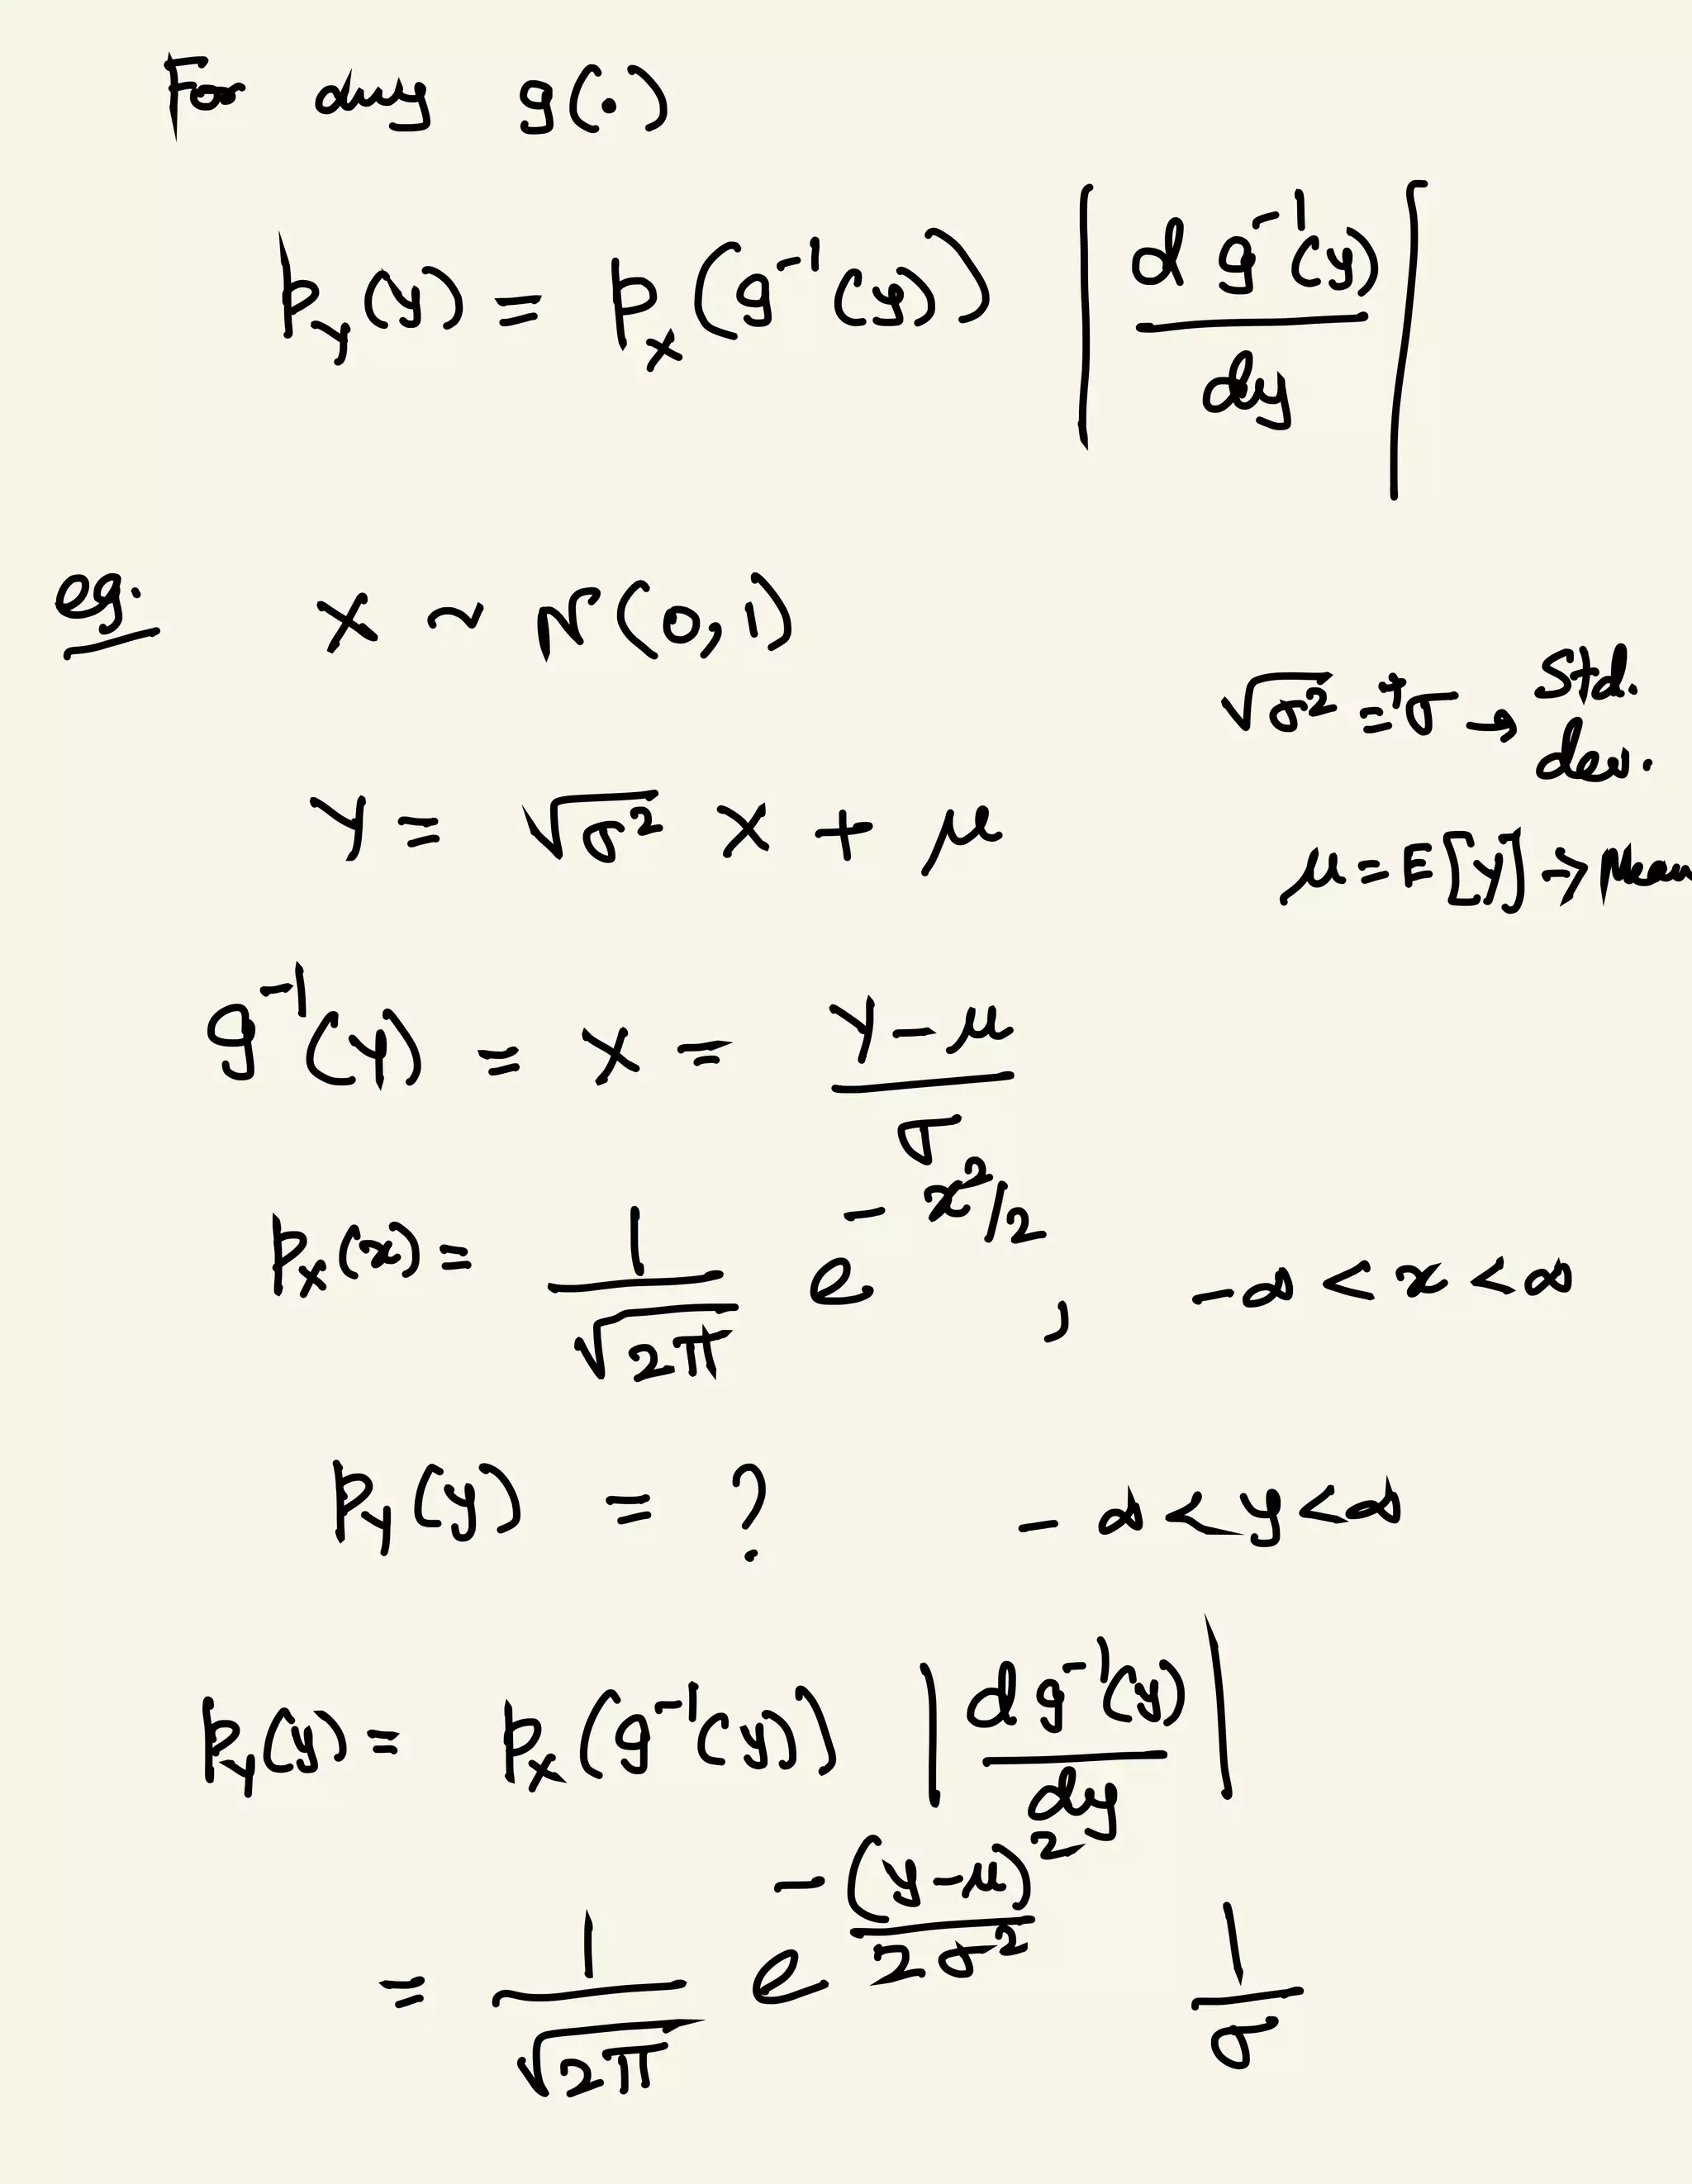 For any g(·)
p_Y(y) = p_X(g⁻¹(y)) | d g⁻¹(y) / dy |
eg. X ~ N(0,1)
√σ² = +σ → Std. dev.
Y = √σ² X + μ
μ = E[Y] → Mean
g⁻¹(Y) = X = (Y - μ) / σ
p_X(x) = 1/√2π e^(- x²/2) , -∞ < x < ∞
p_Y(y) = ? -∞ < y < ∞
p_Y(y) = p_X(g⁻¹(y)) | d g⁻¹(y) / dy |
= 1/√2π e^(-(y-μ)² / 2σ²) 1/σ